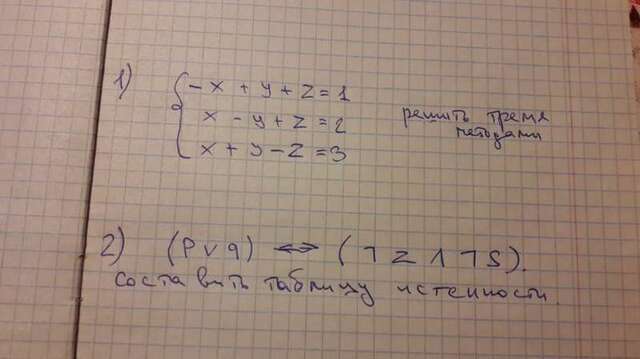 1) { -x + y + z = 1
x - y + z = 2
x + y - z = 3
решить тремя
методами
2) (p ∨ q) ⟺ (¬ z ∧ ¬ s).
составить таблицу истенности.